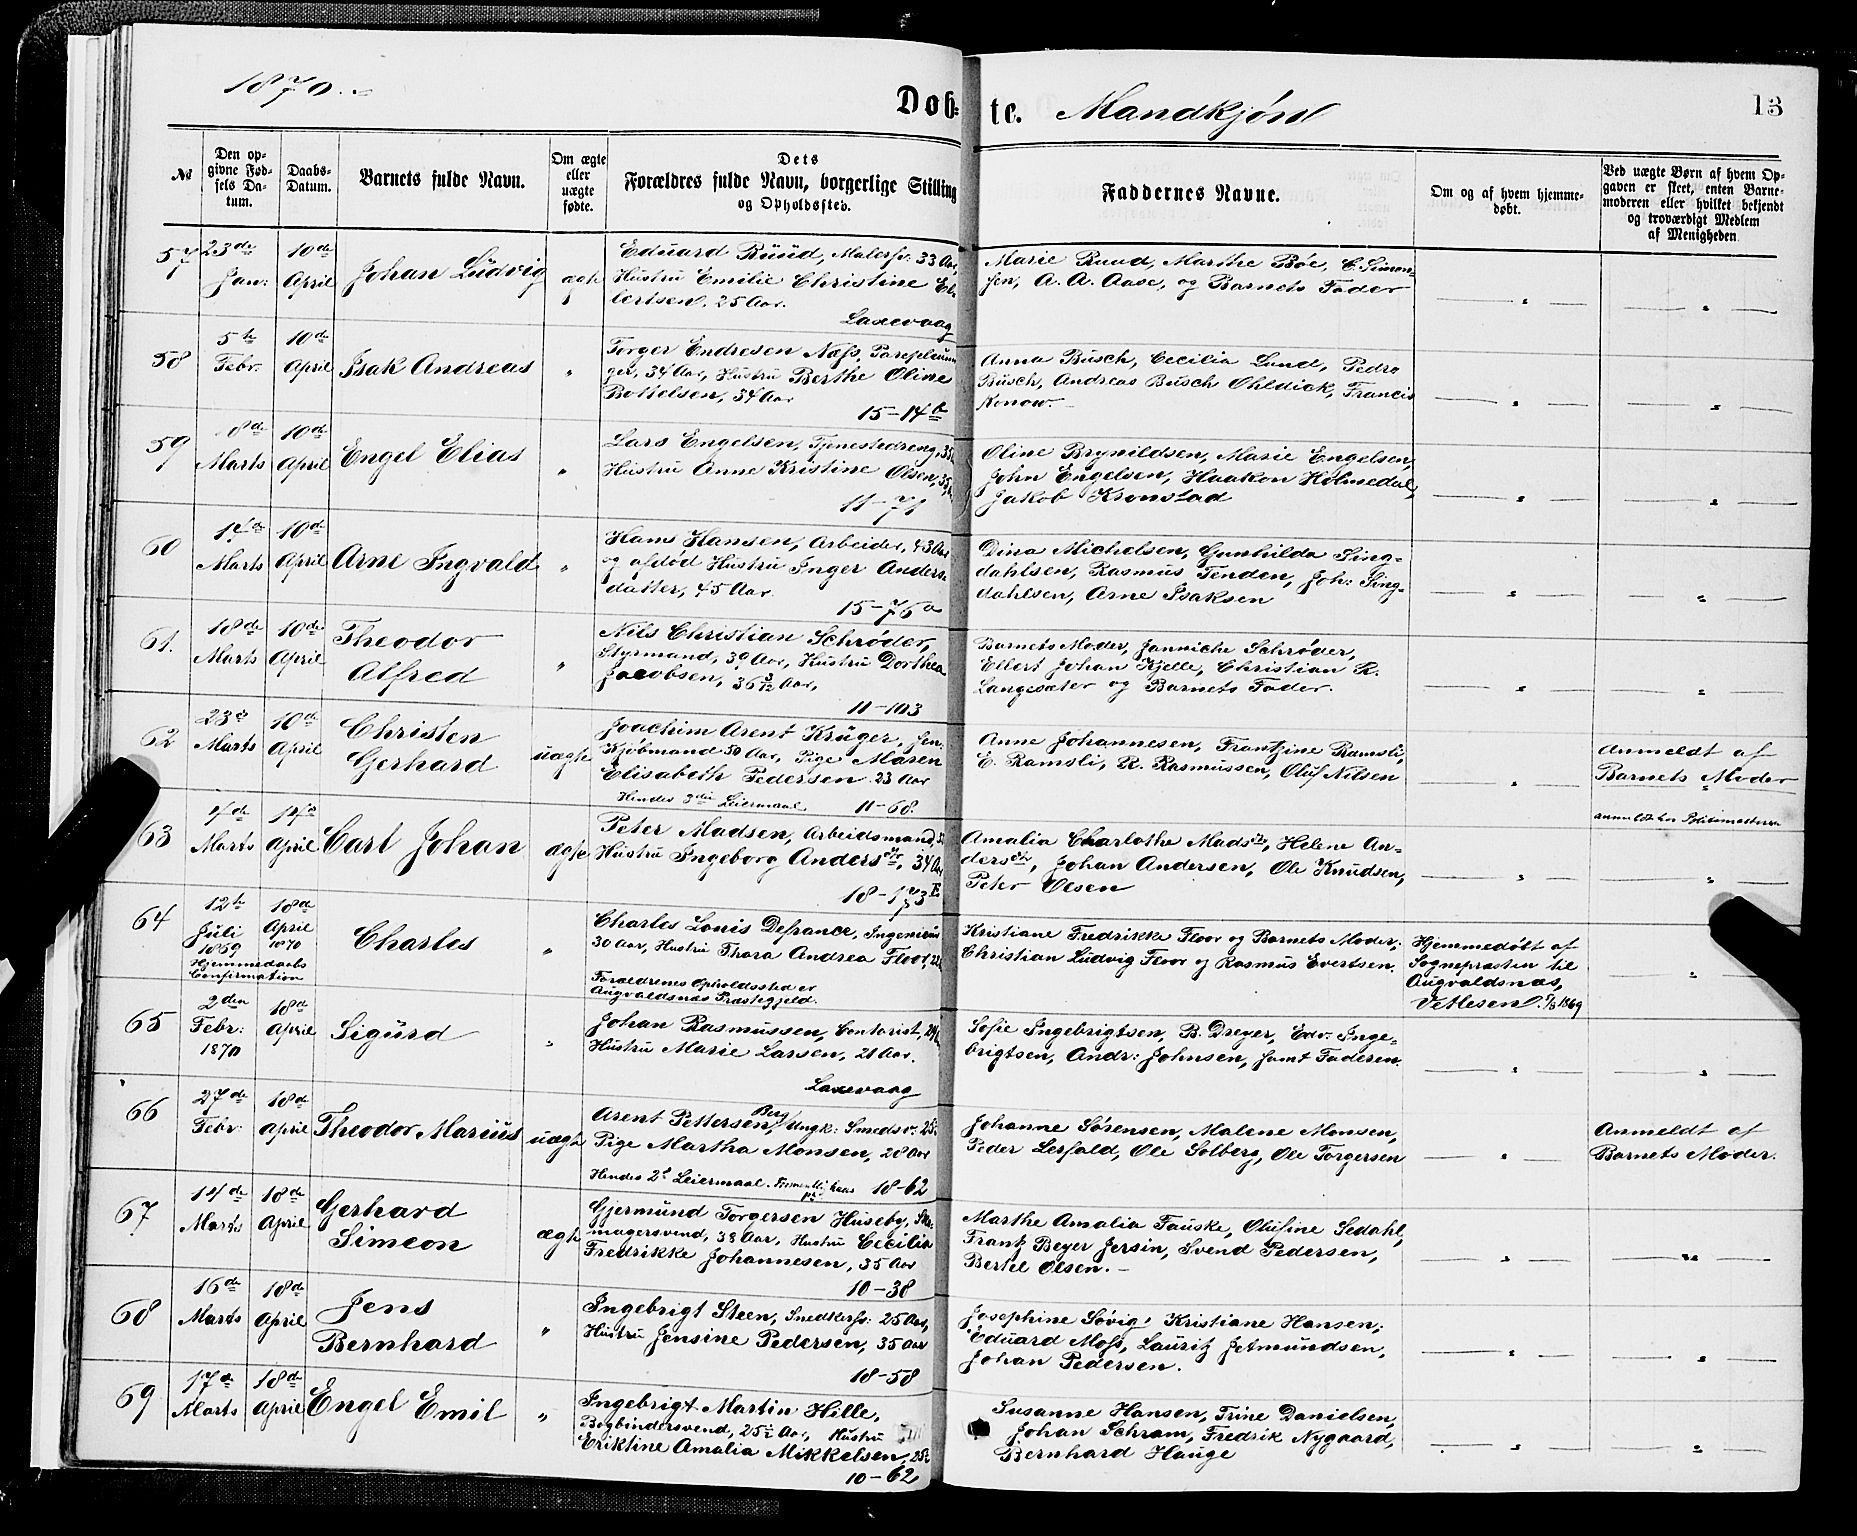 1870.
Døb-
te.
Mandkjøn
13
№
Den op-
givne Fød-
sels Da-
tum.
Daabs-
Datum.
Barnets fulde Navn.
Om ægte
eller
uægte
fødte.
Dets
Forældres fulde Navn, borgerlige Stilling
og Opholdssted.
Faddernes Navne.
Om og af hvem hjemme-
døbt.
Ved uægte Børn af hvem Op-
gaven er skeet, enten Barne-
moderen eller hvilket bekjendt
og troværdigt Medlem
af Menigheden
57
23de
Jan:
10de
April
Johan Ludvig
ægte
Eduard Ruud, Malersv. 33 Aar,
Hustru Emilie Christine El-
lertsen, 25 Aar.
Laxevaag
Marie Ruud, Marthe Bøe, E. Simon-
sen, A. A. Aase, og Barnets Fader
58
5te
Febr.
10de
April
Isak Andreas
"
Torger Endresen Næss,
34 Aar, Hustru Berthe Oline
Bottelsen, 34 Aar
15-14b
Anna Busch, Cecilia Lund, Pedro
Busch, Andreas Busch Ohldiek, Francis
Konow.
59
8de
Marts
10de
April
Engel Elias
"
Lars Engelsen, Tjenestedreng, 33
Hustru Anne Kristine Olsen, 35
11-71
Oline Brynildsen, Marie Engelsen,
John Engelsen, Haakon Holmedal,
Jakob Kronstad
60
Marts
10de
April
Arne Ingvald
"
Hans Hansen, Arbeider, 43 Aar
og afdød Hustru Inger Anders-
datter, 45 Aar.
15-76a
Dina Michelsen, Gunhilda Sing-
dahlsen, Rasmus Tenden, Joh: Sing-
dahlsen, Arne Isaksen
61.
18de
Marts
10de
April
Theodor
Alfred
"
Nils Christian Schrøder,
Styrmand, 30 Aar, Hustru Dorthea
Jacobsen, 36 3/12 Aar,
11-103
Barnets Moder, Jannicke Schrøder,
Ellert Johan Kjelle, Christian R.
Langesæter og Barnets Fader.
62
23de
Marts
10de
April
Christen
Gerhard
uægte
Joachim Arent Krüger, sen.
Kjøbmand 50 Aar, Pige Maren
Elisabeth Pedersen 23 Aar
Hendes 3die Leiermaal 11-68.
Anne Johannesen, Frantzine Ramsli,
E. Ramsli, R. Rasmussen, Oluf Nilsen
Anmeldt af
Barnets Moder
63
4de
Marts
14de
April
Carl Johan
ægte
Peter Madsen, Arbeidsmand,
Hustru Ingeborg Andersdtr, 34 Aar
18-173E
Amalia Charlotte Madsdtr, Helene An-
dersdtr, Johan Andersen, Ole Knudsen,
Peter Olsen
64
12te
Juli
1869
Hjemmedaabs
Confirmation
18de
April
1870
Charles
"
Charles Louis Defrance, Ingeniør
30 Aar, Hustru Thora Andrea Floor, 22
Forældrenes Opholdssted er
Augvaldsnæs Præstegjeld.
Kristiane Fredrikke Floor og Barnets Moder;
Christian Ludvig Floor og Rasmus Evertsen.
Hjemmedøbt af
Sognepræsten til
Augvaldsnæs,
Vetlesen. 7/8 1869
65
2den
Febr:
1870
18de
April
Sigurd
"
Johan Rasmussen, Contorist, 24
Hustru Marie Larsen, 21 Aar.
Laxevaag
Sofie Ingebrigtsen, B. Dreyer, Edv. Inge-
brigtsen, Andr: Johnsen, samt Faderen.
66
27de
Febr:
18de
April
Theodor Marius
uægte
Arent Pettersen, Berg, Ungk: Smedsv. 25
Pige Martha Monsen, 28 Aar
Hendes 2d Leiermaal. 18-62
Johanne Sørensen, Malene Monsen,
Peder Lerfald, Ole Solberg, Ole Torgersen
Anmeldt af
Barnets Moder.
67
14de
Marts
18de
April
Gerhard
Simeon
ægte
Gjermund Torgersen Huseby, Sko-
magersvend, 38 Aar, Hustru Cecilia
Fredrikke Johannesen, 35 Aar
10-38
Marthe Amalia Fauske, Olufine Sedahl,
Frantz Beyer Jersin, Svend Pedersen,
Bertel Olsen.
68
16de
Marts
18de
April
Jens
Bernhard
"
Ingebrigt Steen, Snedkersv: 25 Aar,
Hustru Jensine Pedersen, 35 Aar
18-58
Josephine Søvig, Kristiane Hansen,
Eduard Moss, Lauritz Jetmundsen,
Johan Pedersen.
69
17de
Marts
18de
April
Engel Emil
"
Ingebrigt Martin Hille,
Bogbindersvend, 25 Aar, Hustru
Eriktine Amalia Mikkelsen, 25
10-62
Susanne Hansen, Trine Danielsen,
Johan Schram, Fredrik Nygaard,
Bernhard Hauge